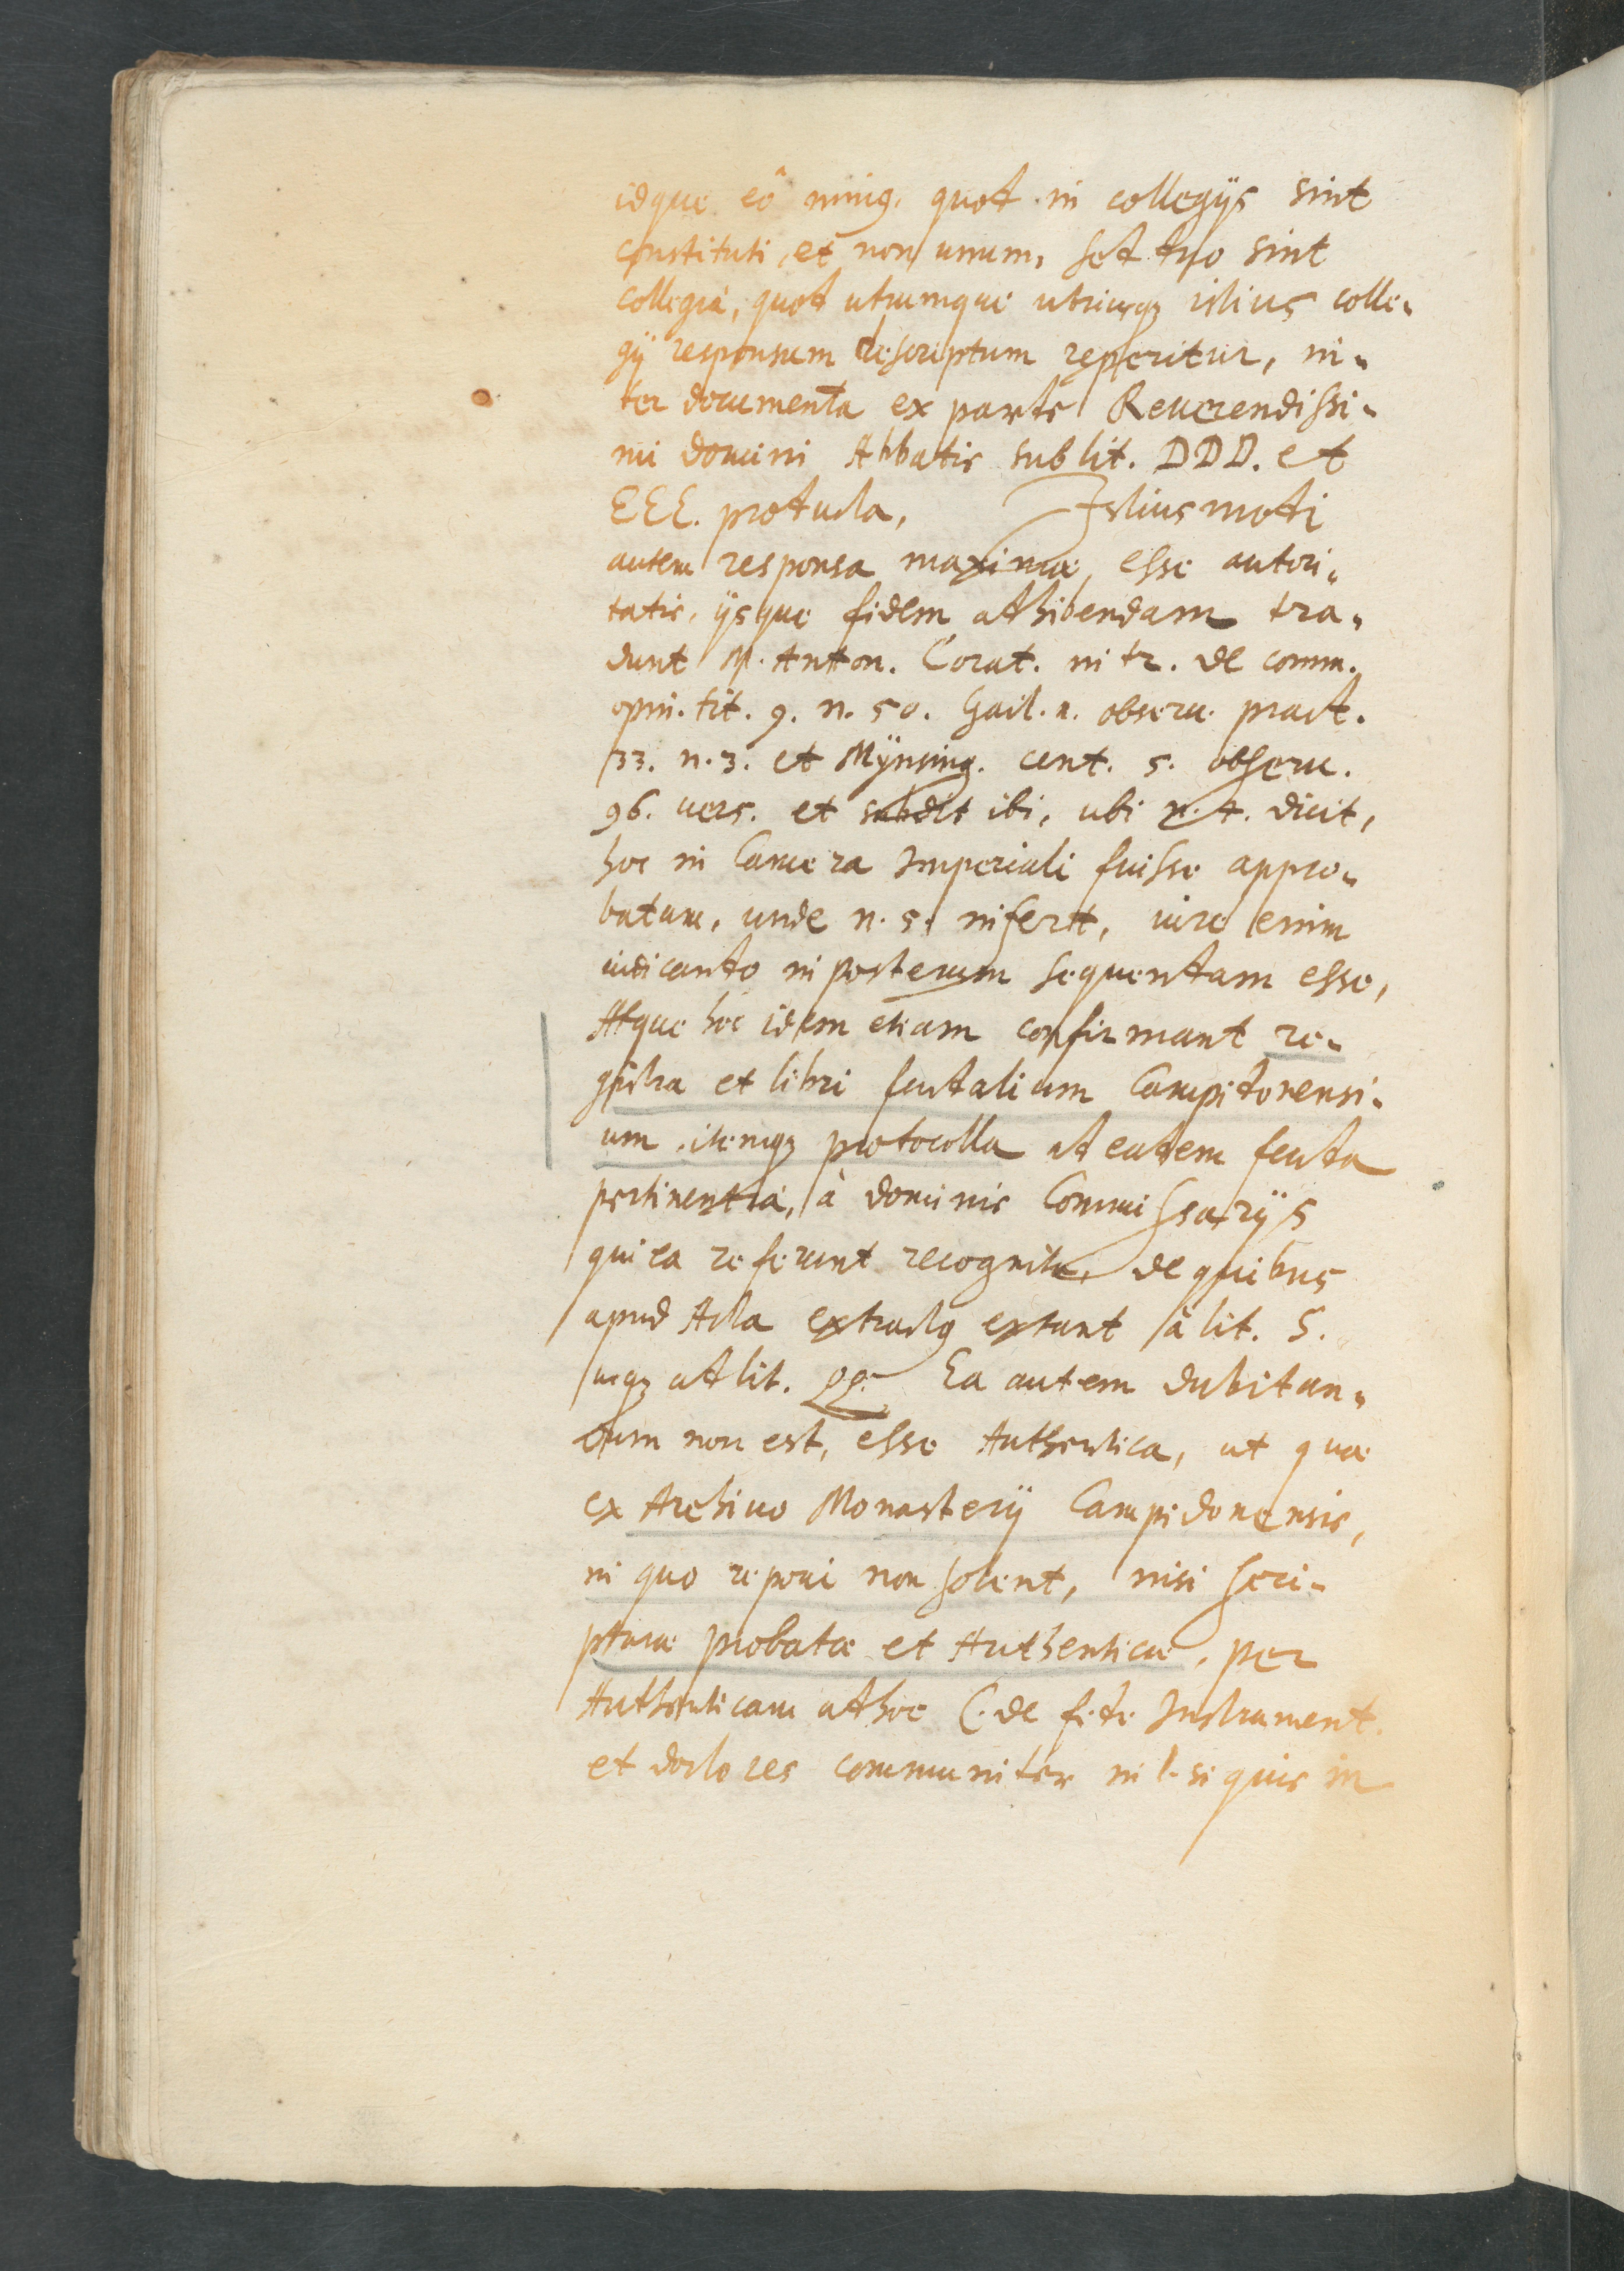 idque eô minꝰ, quod in collegijs sint
constituti, et non unum, sed duo sint
collegia, quod utrumque utriusqꝫ istius colle-
gij responsum descriptum reperitur, in-
ter documenta ex parte Reuerendissi-
mi domini Abbatis sub lit. DDD. et
EEE. producta, Istiusmodi
autem responsa maximæ esse autori-
tatis, ijsque fidem adhibendam tra-
dunt M. Anton. Corat. in tr. de comm.
opin. tit. 9. n. 50. Gail. 1. obseru. pract.
33. n. 3. et Mÿnsing. cent. 5. obseru.
96. vers. et subdit ibi, ubi n. 4. dicit,
hoc in Camera Imperiali fuisse appro-
batum, unde n. 5. infert, iure enim
iudicando in posterum sequendam esse,
Atque hoc idem etiam confirmant re-
gistra et libri feudalium Campidonensi-
um, itemqꝫ protocolla ad eadem feuda
pertinentia, à dominis Commissarijs
qui ea referunt recognita, de quibus
apud Acta extractꝰ extant à lit. S.
usqꝫ ad lit. QQ. Ea autem dubitan-
dum non est, esse Authentica, ut quæ
ex Archiuo Monasterij Campidonensis,
in quo reponi non solent, nisi scri-
pturæ probatæ et Authenticæ, per
Authenticam ad hoc C. de fide Instrument.
et doctores communiter in l. si quis in